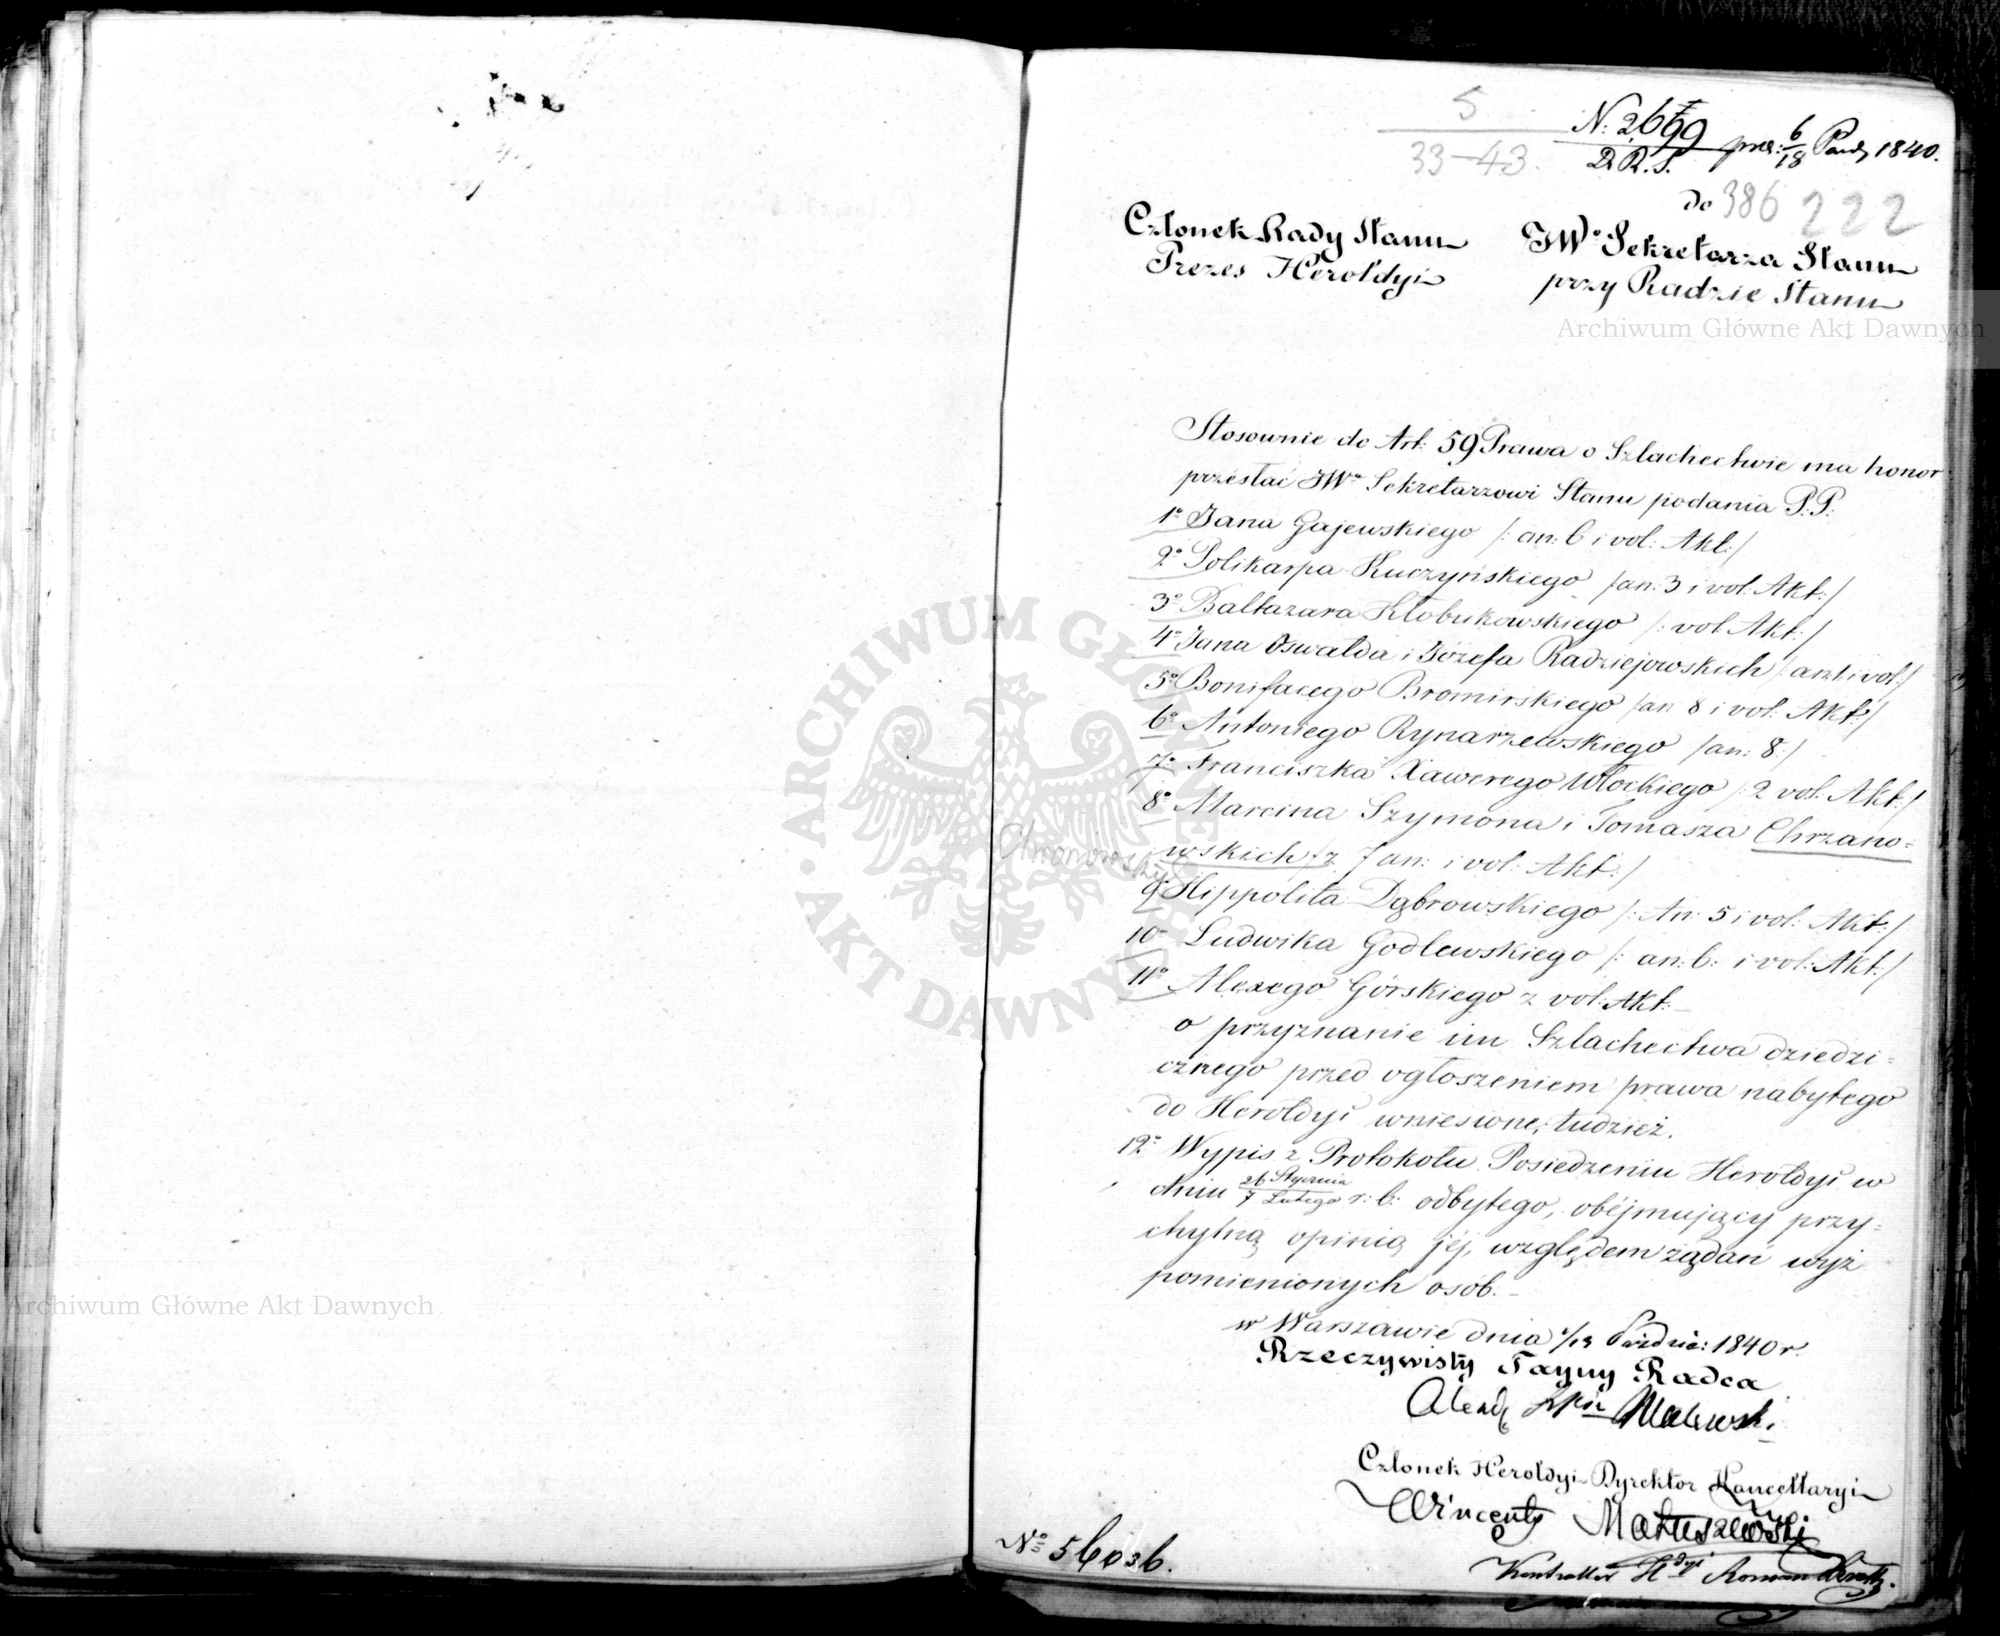 5
33-43.
pres: 6/18 Paźdz 1840.
D.R.S.
do 386 222
Członek Rady Stanu
Prezes Heroldyi
JWo Sekretarza Stanu
przy Radzie Stanu
Archiwum Główne Akt Dawnych
Stosownie do Art: 59 Prawa o Szlachectwie ma honor
przesłać JWu Sekretarzowi Stanu podania P.P.
1o Jana Gajewskiego /: an: 6 i vol: Akt:/
2o Polikarpa Kuczyńskiego /an: 3 i vol: Akt:/
3o Baltazara Kłobukowskiego /: vol Akt:/
4o Jana Oswalda i Józefa Radziejowskich i vol:/
5o Bonifacego Bromirskiego /an 8 i vol: Akt:/
6o Antoniego Rynarzewskiego /an: 8:/
7o Franciszka Xawerego Włockiego /: 2 vol: Akt:/
8o Marcina Szymona i Tomasza Chrzano=
wskich /: z 7 an: i vol: Akt:/
9o Hippolita Dąbrowskiego /: An: 5 i vol: Akt:/
10o Ludwika Godlewskiego /: an: 6: i vol: Akt:/
11o Alexego Górskiego z vol: Akt:
o przyznanie im Szlachectwa dziedzi=
cznego przed ogłoszeniem prawa nabytego
do Heroldyi wniesione, tudzież.
12o Wypis z Protokołu Posiedzenia Heroldyi w
dniu 26 Stycznia/7 Lutego r: b: odbytego, obejmujący przy=
chylną opinią jéj, względem żądań wyż
pomienionych osób.
w Warszawie dnia 1/13 Paździe: 1840 r.
Rzeczywisty Tayny Radca
Alexdr Hrbia Walewski
Członek Heroldyi Dyrektor Kancellaryi
Wincenty Matuszewski
Kontroller Hdyi Roman
No 56036.
Archiwum Główne Akt Dawnych
ARCHIWUM GŁÓWNE AKT DAWNYCH